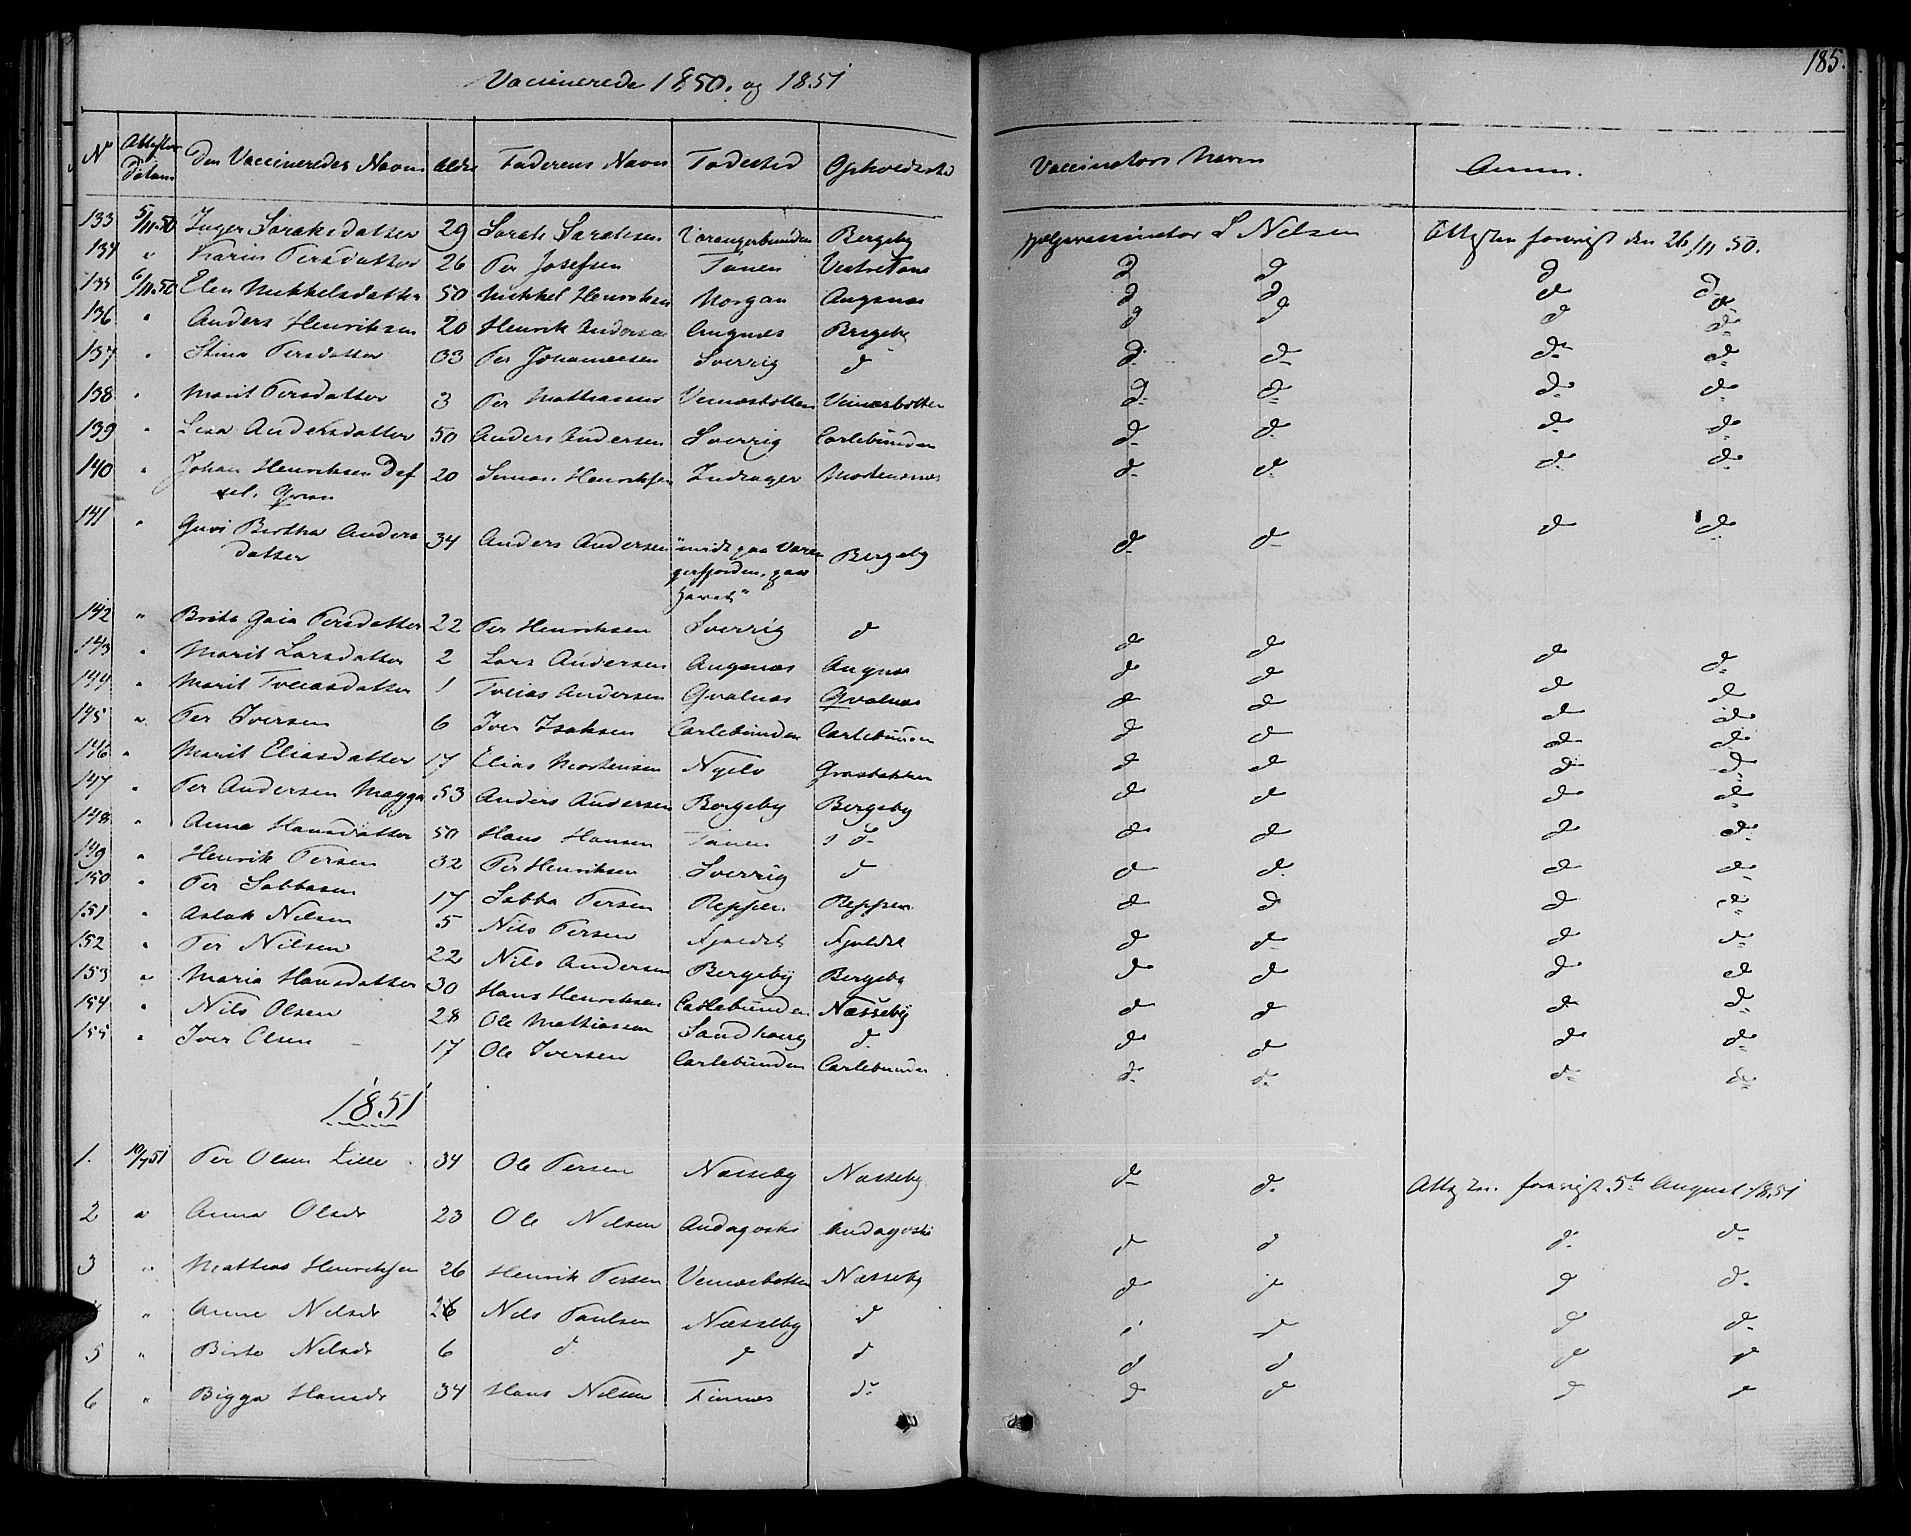 Vaccinerede 1850. og 1851
185.
No Attestens Datum Den Vaccineredes Navn Alder Faderens Navn Fødested Opholdssted Vaccinators Navn Anm.
133 5/11.50 Inger Sarahsdatter 29 Sarah Sarahsen Varangerbunden Bergeby Hjelpevaccinator S Nilsen Attesten fornyet den 26/11 50.
134 " Karin Persdatter 26 Per Josefsen Tanen Vestre Tana d d d d
135 6/11.50 Elen Mikkelsdatter 50 Mikkel Henriksen Norgan Angsnæs d d d d
136 " Anders Henriksen 20 Henrik Andersen Angnæs Bergeby d d d d
137 " Stina Persdatter 33 Per Johannesen Sverrig d d d d d
138 " Marit Persdatter 3 Per Mathiassen Veinesbotten Veinesbotten d d d d
139 " Lisa Andersdatter 50 Anders Andersen Sverrig Carlebunden d d d d
140 " Johan Henriksen
20 Simon Henriksen Indrager Mortensnæs d d d d
141 " Guri Birtha Anders
datter 34 Anders Andersen "midt paa Varan
gerfjorden, paa
Havet" Bergeby d d d d
142 " Brita Gaia Persdatter 22 Per Henriksen Sverrig d d d d d
143 " Marit Larsdatter 2 Lars Andersen Angsnæs Angnæs d d d d
144 " Marit Toliasdatter 1 Tolias Andersen Qvalnæs Qvalnæs d d d d
145 " Per Iversen 6 Iver Isaksen Carlebunden Carlebunden d d d d
146 " Marit Eliasdatter 17 Elias Mortensen Nyelv Græsbakken d d d d
147 " Per Andersen Magga 53 Anders Andersen Bergeby Bergeby d d d d
148 " Anna Hansdatter 50 Hans Hansen Tanen d d d d d
149 " Henrik Persen 32 Per Henriksen Sverrig d d d d d
150 " Per Sabbasen 17 Sabba Persen Reppen Reppen d d d d
151 " Aslak Nilsen 5 Nils Persen Fjeldet Fjeldet d d d d
152 " Per Nilsen 22 Nils Andersen Bergeby Bergeby d d d d
153 " Maria Hansdatter 30 Hans Henriksen Carlebunden Næsseby d d d d
154 " Nils Olsen 28 Ole Mathiassen Sandhaug d d d d d
155 " Iver Olsen 17 Ole Iversen Carlebunden Carlebunden d d d d
1851
1. 10/7 51 Per Olsen Lille 34 Ole Persen Næsseby Næsseby d d Attesten fornyet 5te August 1851
2 " Anna Olsdr 23 Ole Nilsen Andagoski Andagoski d d d d
3 " Mathias Henriksen 26 Henrik Persen Veinesbotten Næsseby d d d d
" Anne Nilsdr Nils Paulsen Næsseby d d d d d
5 " Birte Nilsdr 6 d d d d d d d
6 " Bigga Hansdr 34 Hans Nilsen Finnes d d d d d